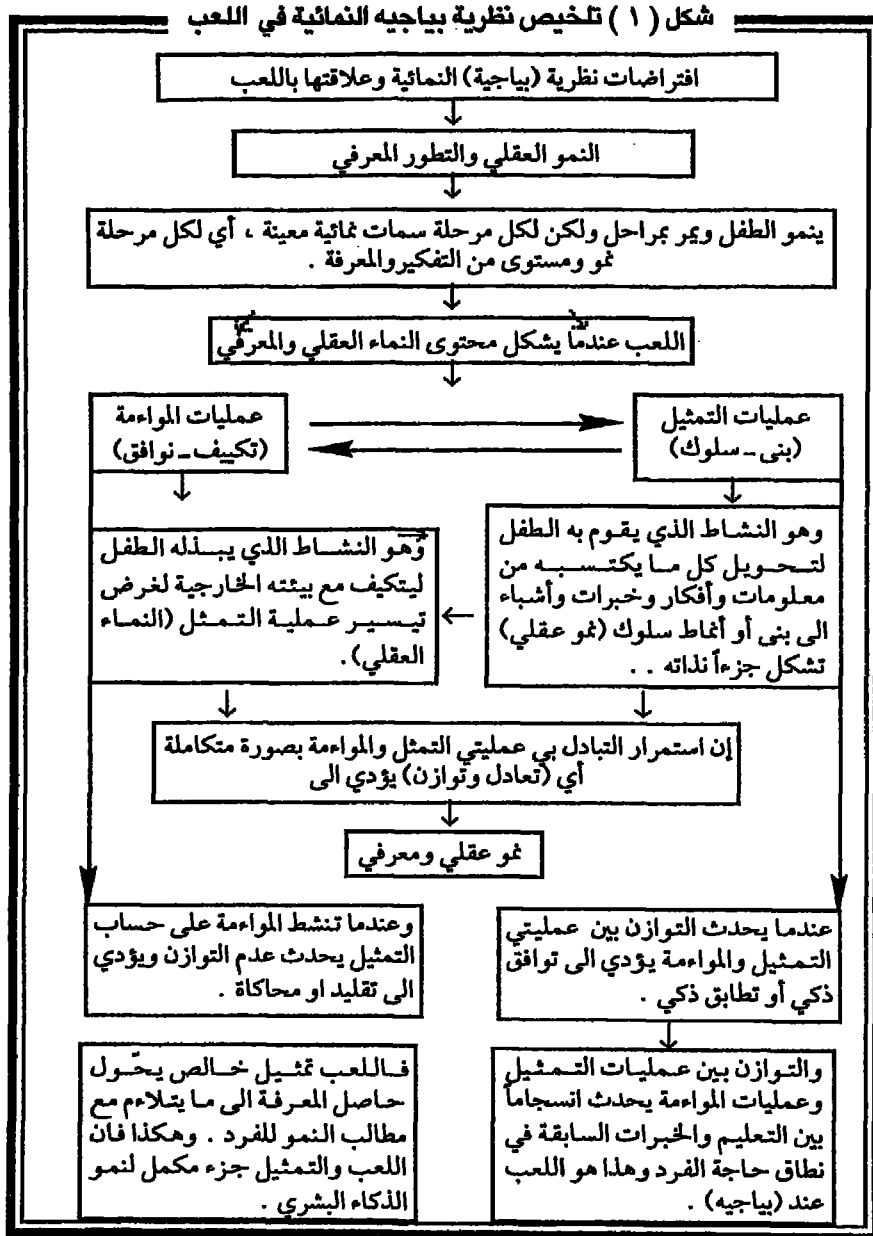 شكل ( ١ ) تلخيص نظرية بياجيه النمائية في اللعب
افتراضات نظرية (بياجية) النمائية وعلاقتها باللعب
النمو العقلي والتطور المعرفي
ينمو الطفل ويمر بمراحل ولكن لكل مرحلة سمات نمائية معينة ، أي لكل مرحلة
نمو ومستوى من التفكيروالمعرفة .
اللعب عندما يشكل محتوى النماء العقلي والمعرفي
عمليات التمثيل
(بنى ـ سلوك)
عمليات المواءمة
(تكييف ـ نوافق)
وهو النشاط الذي يقوم به الطفل
لتحويل كل ما يكتسبه من
معلومات وأفكار وخبرات وأشباء
الى بنى أو أنماط سلوك (نمو عقلي)
تشكل جزءاً نذاته . .
وهو النشاط الذي يبذله الطفل
ليتكيف مع بيئته الخارجية لغرض
تيسير عملية التمثل (النماء
العقلي).
إن استمرار التبادل بي عمليتي التمثل والمواءمة بصورة متكاملة
أي (تعادل وتوازن) يؤدي الى
نمو عقلي ومعرفي
عندما يحدث التوازن بين عمليتي
التمثيل والمواءمة يؤدي الى توافق
ذكي أو تطابق ذكي .
وعندما تنشط المواءمة على حساب
التمثيل يحدث عدم التوازن ويؤدي
الى تقليد او محاكاة .
والتوازن بين عمليات التمثيل
وعمليات المواءمة يحدث انسجاماً
بين التعليم والخبرات السابقة في
نطاق حاجة الفرد وهذا هو اللعب
عند (بياجيه) .
فاللعب تمثيل خالص يحّول
حاصل المعرفة الى ما يتلاءم مع
مطالب النمو للفرد . وهكذا فان
اللعب والتمثيل جزء مكمل لنمو
الذكاء البشري .